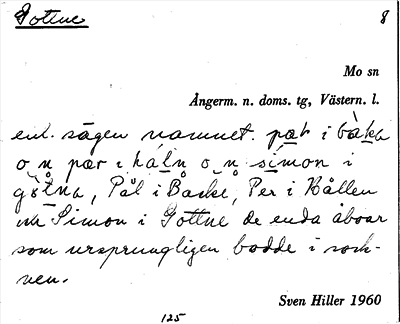 Gottne 8
Mo sn
Ångerm. n. doms. tg, Västern. l.
enl. sägen namnet. pær i bàka
o n pær i kálṇ o n símon i
gòtna, Pål i Backe, Per i Kållen
Simon i Gottne de enda åboar
som ursprungligen bodde i sock-
nen.
Sven Hiller 1960
125